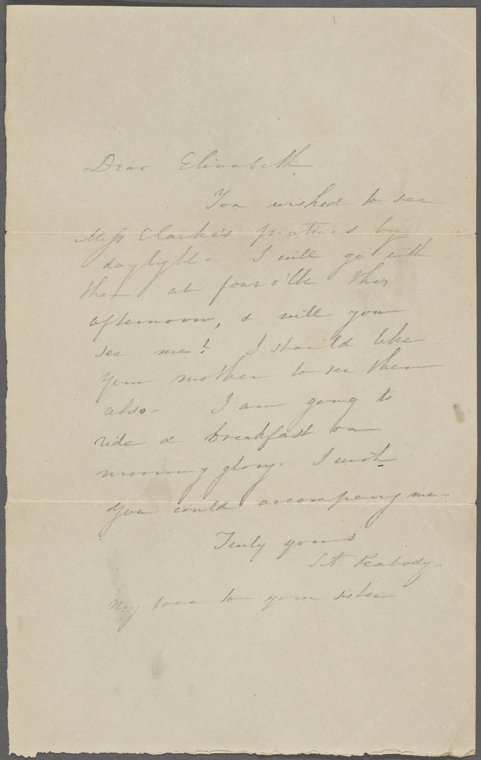 Dear Elizabeth.
You wished to see
Miss Clarke's pictures by
daylight. I will go with
them at four o'clk this
afternoon, & will you
see me? I should like
your mother to see them
also. I am going to
ride & breakfast on
morning glory. I wish
you could accompany me.
Truly yours
S A Peabody.
My love to your sister